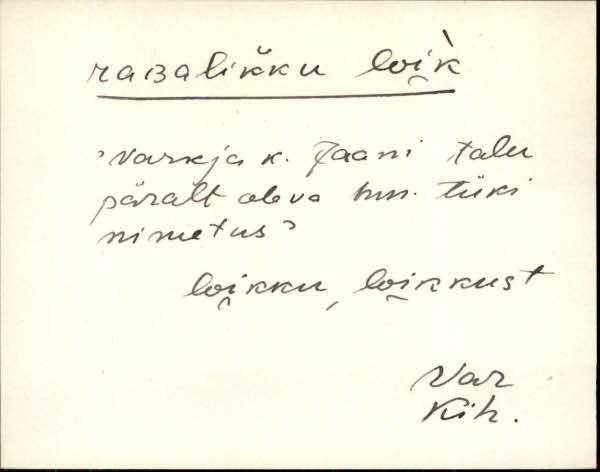 raʙalikku loi̯k̀
'Varkja k. Jaani talu
päralt oleva hm. tüki
nimetus'
loi̯kku, loi̯kkust
Var
Kih.